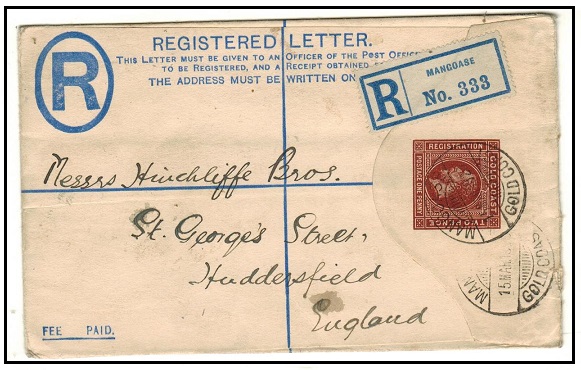 REGISTERED LETTER.
THIS LETTER MUST BE GIVEN TO AN OFFICER OF THE POST OFFICE
TO BE REGISTERED, AND A RECEIPT OBTAINED
THE ADDRESS MUST BE WRITTEN ON
R
MANGOASE
R No. 333
REGISTRATION
GOLD COAST
POSTAGE ONE PENNY
TWO PENCE
GOLD CO
MAN
15 MAR
GOLD COAS
Messrs Hinchliffe Bros.
St. George's Street,
Huddersfield
England
FEE PAID.